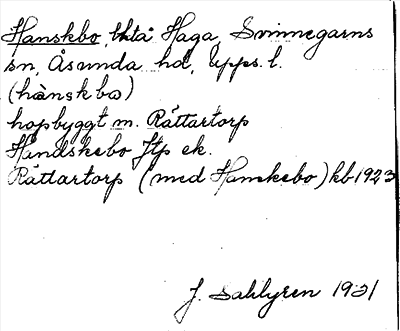 Hanskbo, bktå Haga, Svinnegarns
sn, Åsunda hd, Upps. l.
(hànskbω)
hopbyggt m. Rättartorp
Handskebo Jtp ek.
Rättartorp (med Hanskebo) kb 1923
J. Sahlgren 1931